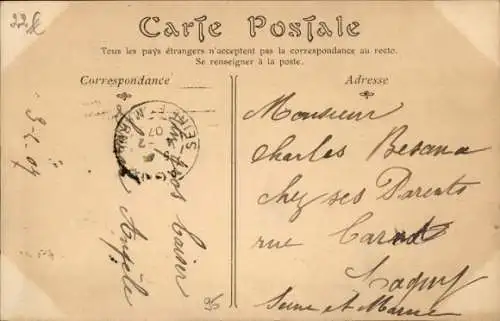 22f
Carte Postale
Tous les pays étrangers n'acceptent pas la correspondance au recto.
Se renseigner à la poste.
Correspondance
Adresse
3-2.07
gros baiser
Angèle
SEINE ET MARNE
07
Monsieur
Charles Besana
chez ses Parents
rue Carnot
Lagny
Seine et Marne